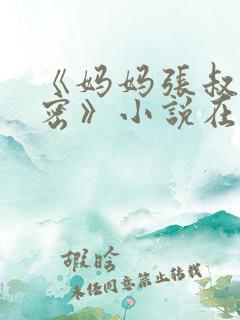 《妈妈張叔
密》小說在
暇晗
未任同意禁止转载